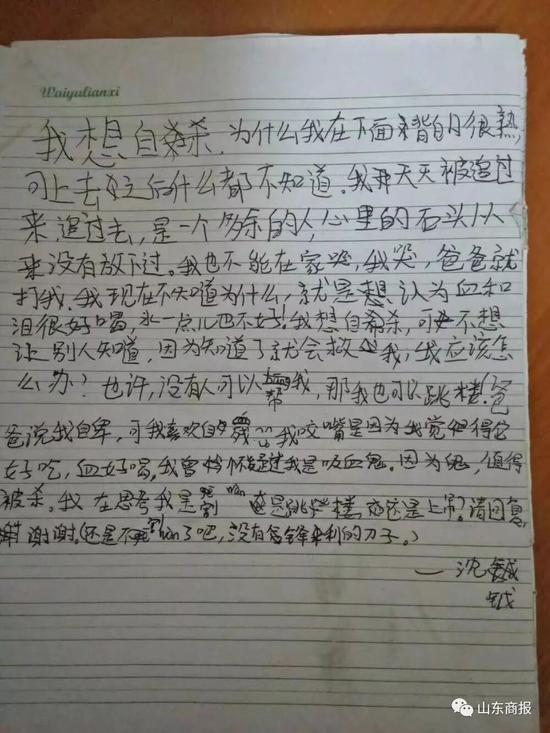 Waiyulianxi
我想自杀,为什么我在下面背的很熟,
可上去之后什么都不知道,我天天被追过
来,追过去,是一个多余的人,心里的石头从
来没有放下过。我也不能在家哭,我哭,爸爸就
打我,我现在不知道为什么,就是想认为血和
泪很好喝,水一点儿也不好!我想自杀,可不想
让别人知道,因为知道了就会救我,我应该怎
么办?也许,没有人可以帮我,那我也可以跳楼。爸
爸说我自卑,可我喜欢自卑我咬嘴是因为我觉得它
好吃,血好喝,我曾怀疑过我是吸血鬼。因为鬼,值得
被杀。我在思考我是割wàn 还是跳楼,还是上吊?请回复,
谢谢。(还是不割wàn了吧,没有锋利的刀子。)
—沈
山东商报